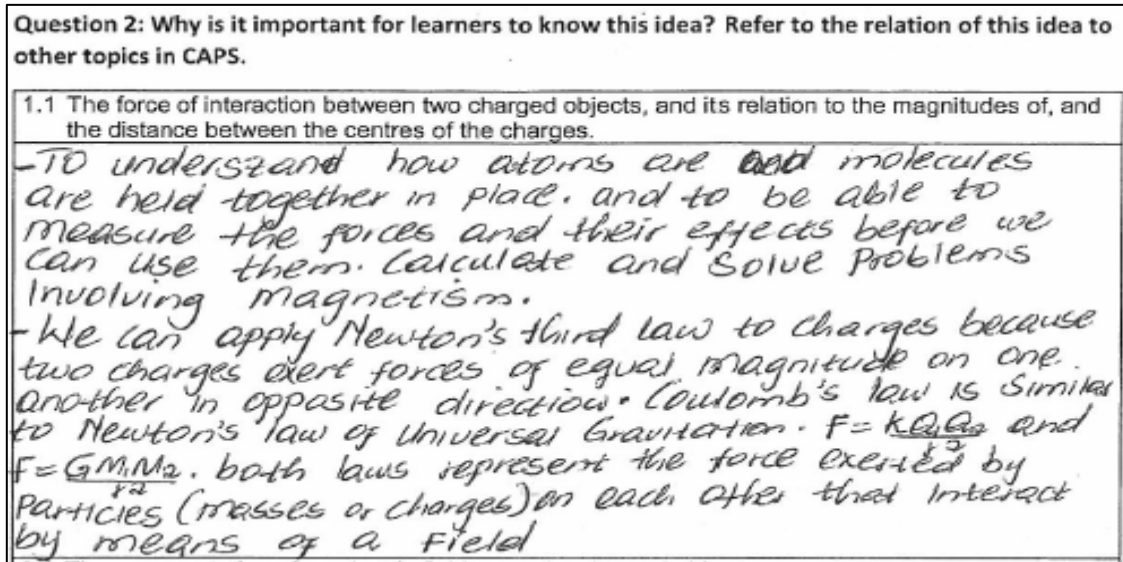 Question 2: Why is it important for learners to know this idea? Refer to the relation of this idea to
other topics in CAPS.
1.1 The force of interaction between two charged objects, and its relation to the magnitudes of, and
the distance between the centres of the charges.
- To understand how atoms are and molecules
are held together in place. and to be able to
measure the forces and their effects before we
can use them. Calculate and Solve Problems
Involving magnetism.
- We can apply Newton's third law to charges because
two charges exert forces of equal magnitude on one
another in opposite direction. Coulomb's law is Similar
to Newton's law of Universal Gravitation. F = kQ1Q2/r2 and
F = GM1M2/r2. both laws represent the force exerted by
Particles (masses or charges) on each other that interact
by means of a Field